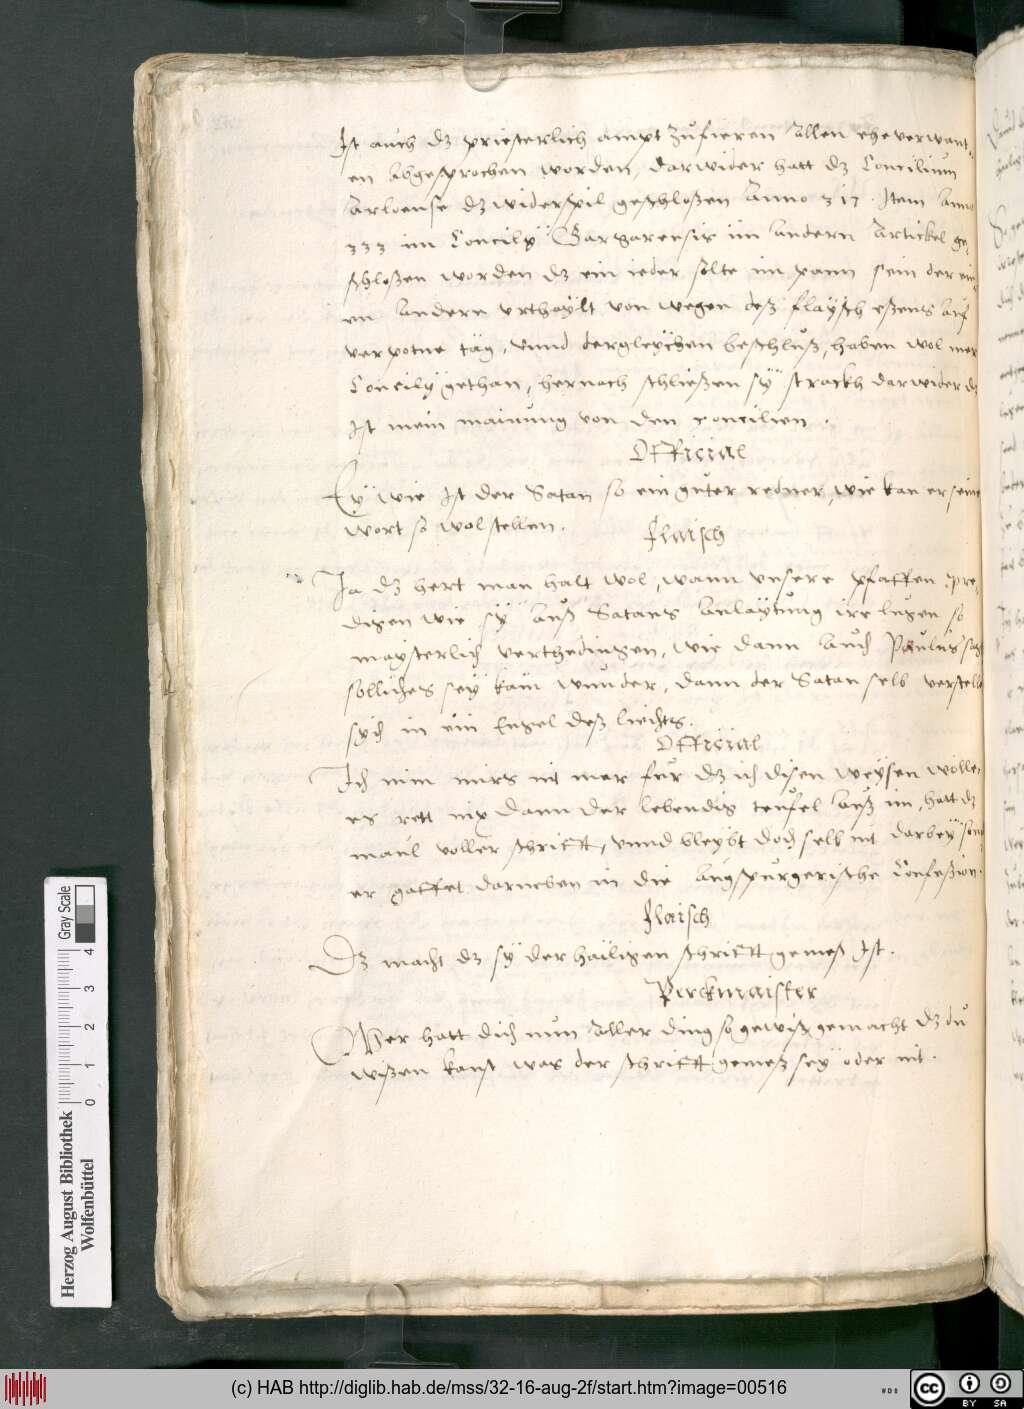 Ist auch dz priesterlich ampt zufieren allen eheverwant-
en abgesprochen worden, darwider hatt dz Concilium
Arloense dz widerspil geschloßen Anno 317. Item Anno
333 im Concily Gargarensis im andern Artickel ge-
schloßen worden dz ein ieder solte im pann sein der ein-
en andern urthaylt von wegen deß flaysch eßens auf
verpotne täg, unnd dergleychen beschluß, haben wol mer
Concily gethan, hernach schließen sy strackh darwider dz
ist mein mainung von den concilien.
Official
Ey wie ist der Satan so ein guter redner, wie kan er seine
wort so wol stellen.
Flaisch
Ja dz hert man halt wol, wann unsere pfaffen pre-
digen wie sy auß Satans anlaytung ire lugen so
maysterlich verthedingen, wie dann auch Paulus sagt
solliches sey kain wunder, dann der Satan selb verstelt
sych in ein Engel deß liechts.
Official
Ich nim mirs nit mer für dz ich disen weysen wölle,
es rett nix dann der lebendig teufel auß im, hatt dz
maul voller schrifft, unnd bleybt doch selb nit darbey
er gaffet darneben in die augspurgerische Confeßion.
Flaisch
Dz macht dz sy der hailigen schrifft gemeß ist.
Pirckmaister
Wer hatt dich nun aller ding so gewiß gemacht dz du
wißen kanst was der schrifft gemeß sey oder nit.
Herzog August Bibliothek
Wolfenbüttel
0 1 2 3 4
Gray Scale
(c) HAB http://diglib.hab.de/mss/32-16-aug-2f/start.htm?image=00516
WDB
cc BY SA